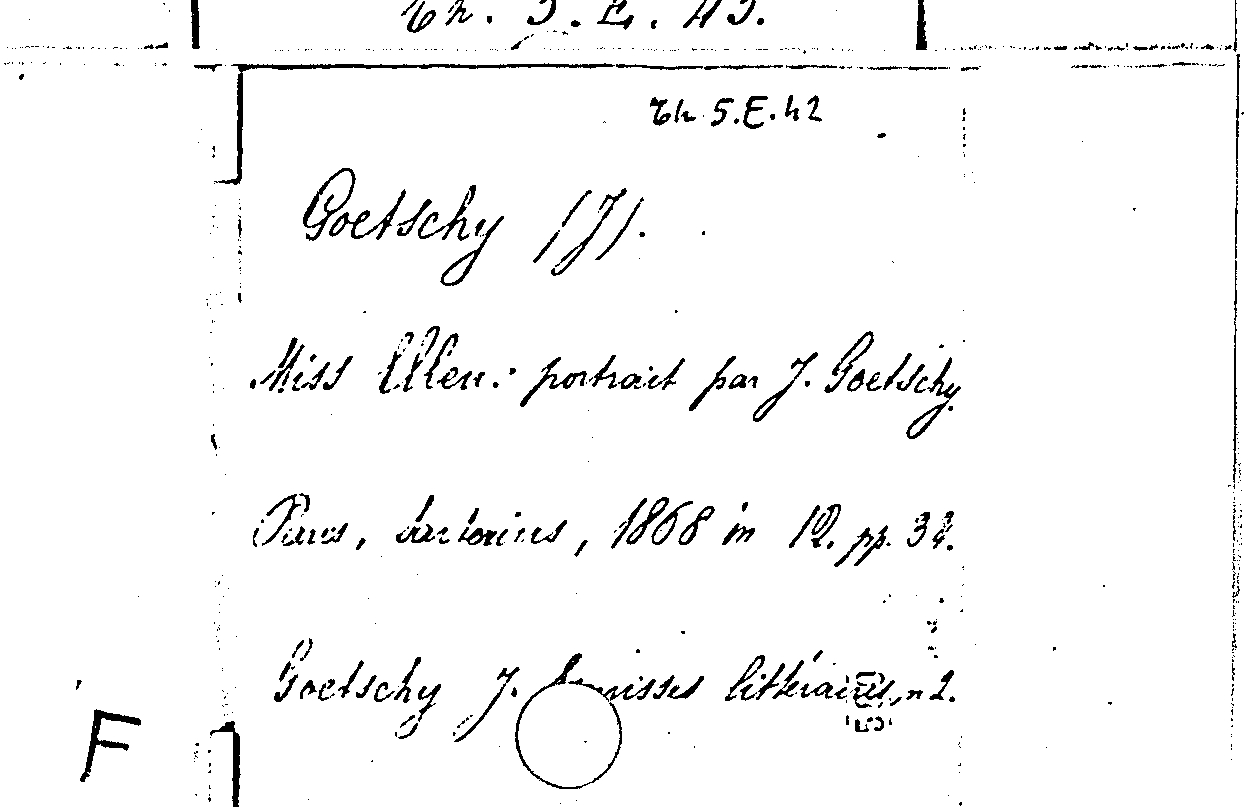 Th 5.E.42
Goetschy (J).
Miss Ellen: portrait par J. Goetschy.
Paris, Sartorius, 1868 in 12. pp. 32.
Goetschy J. littéraires, n 2.
F